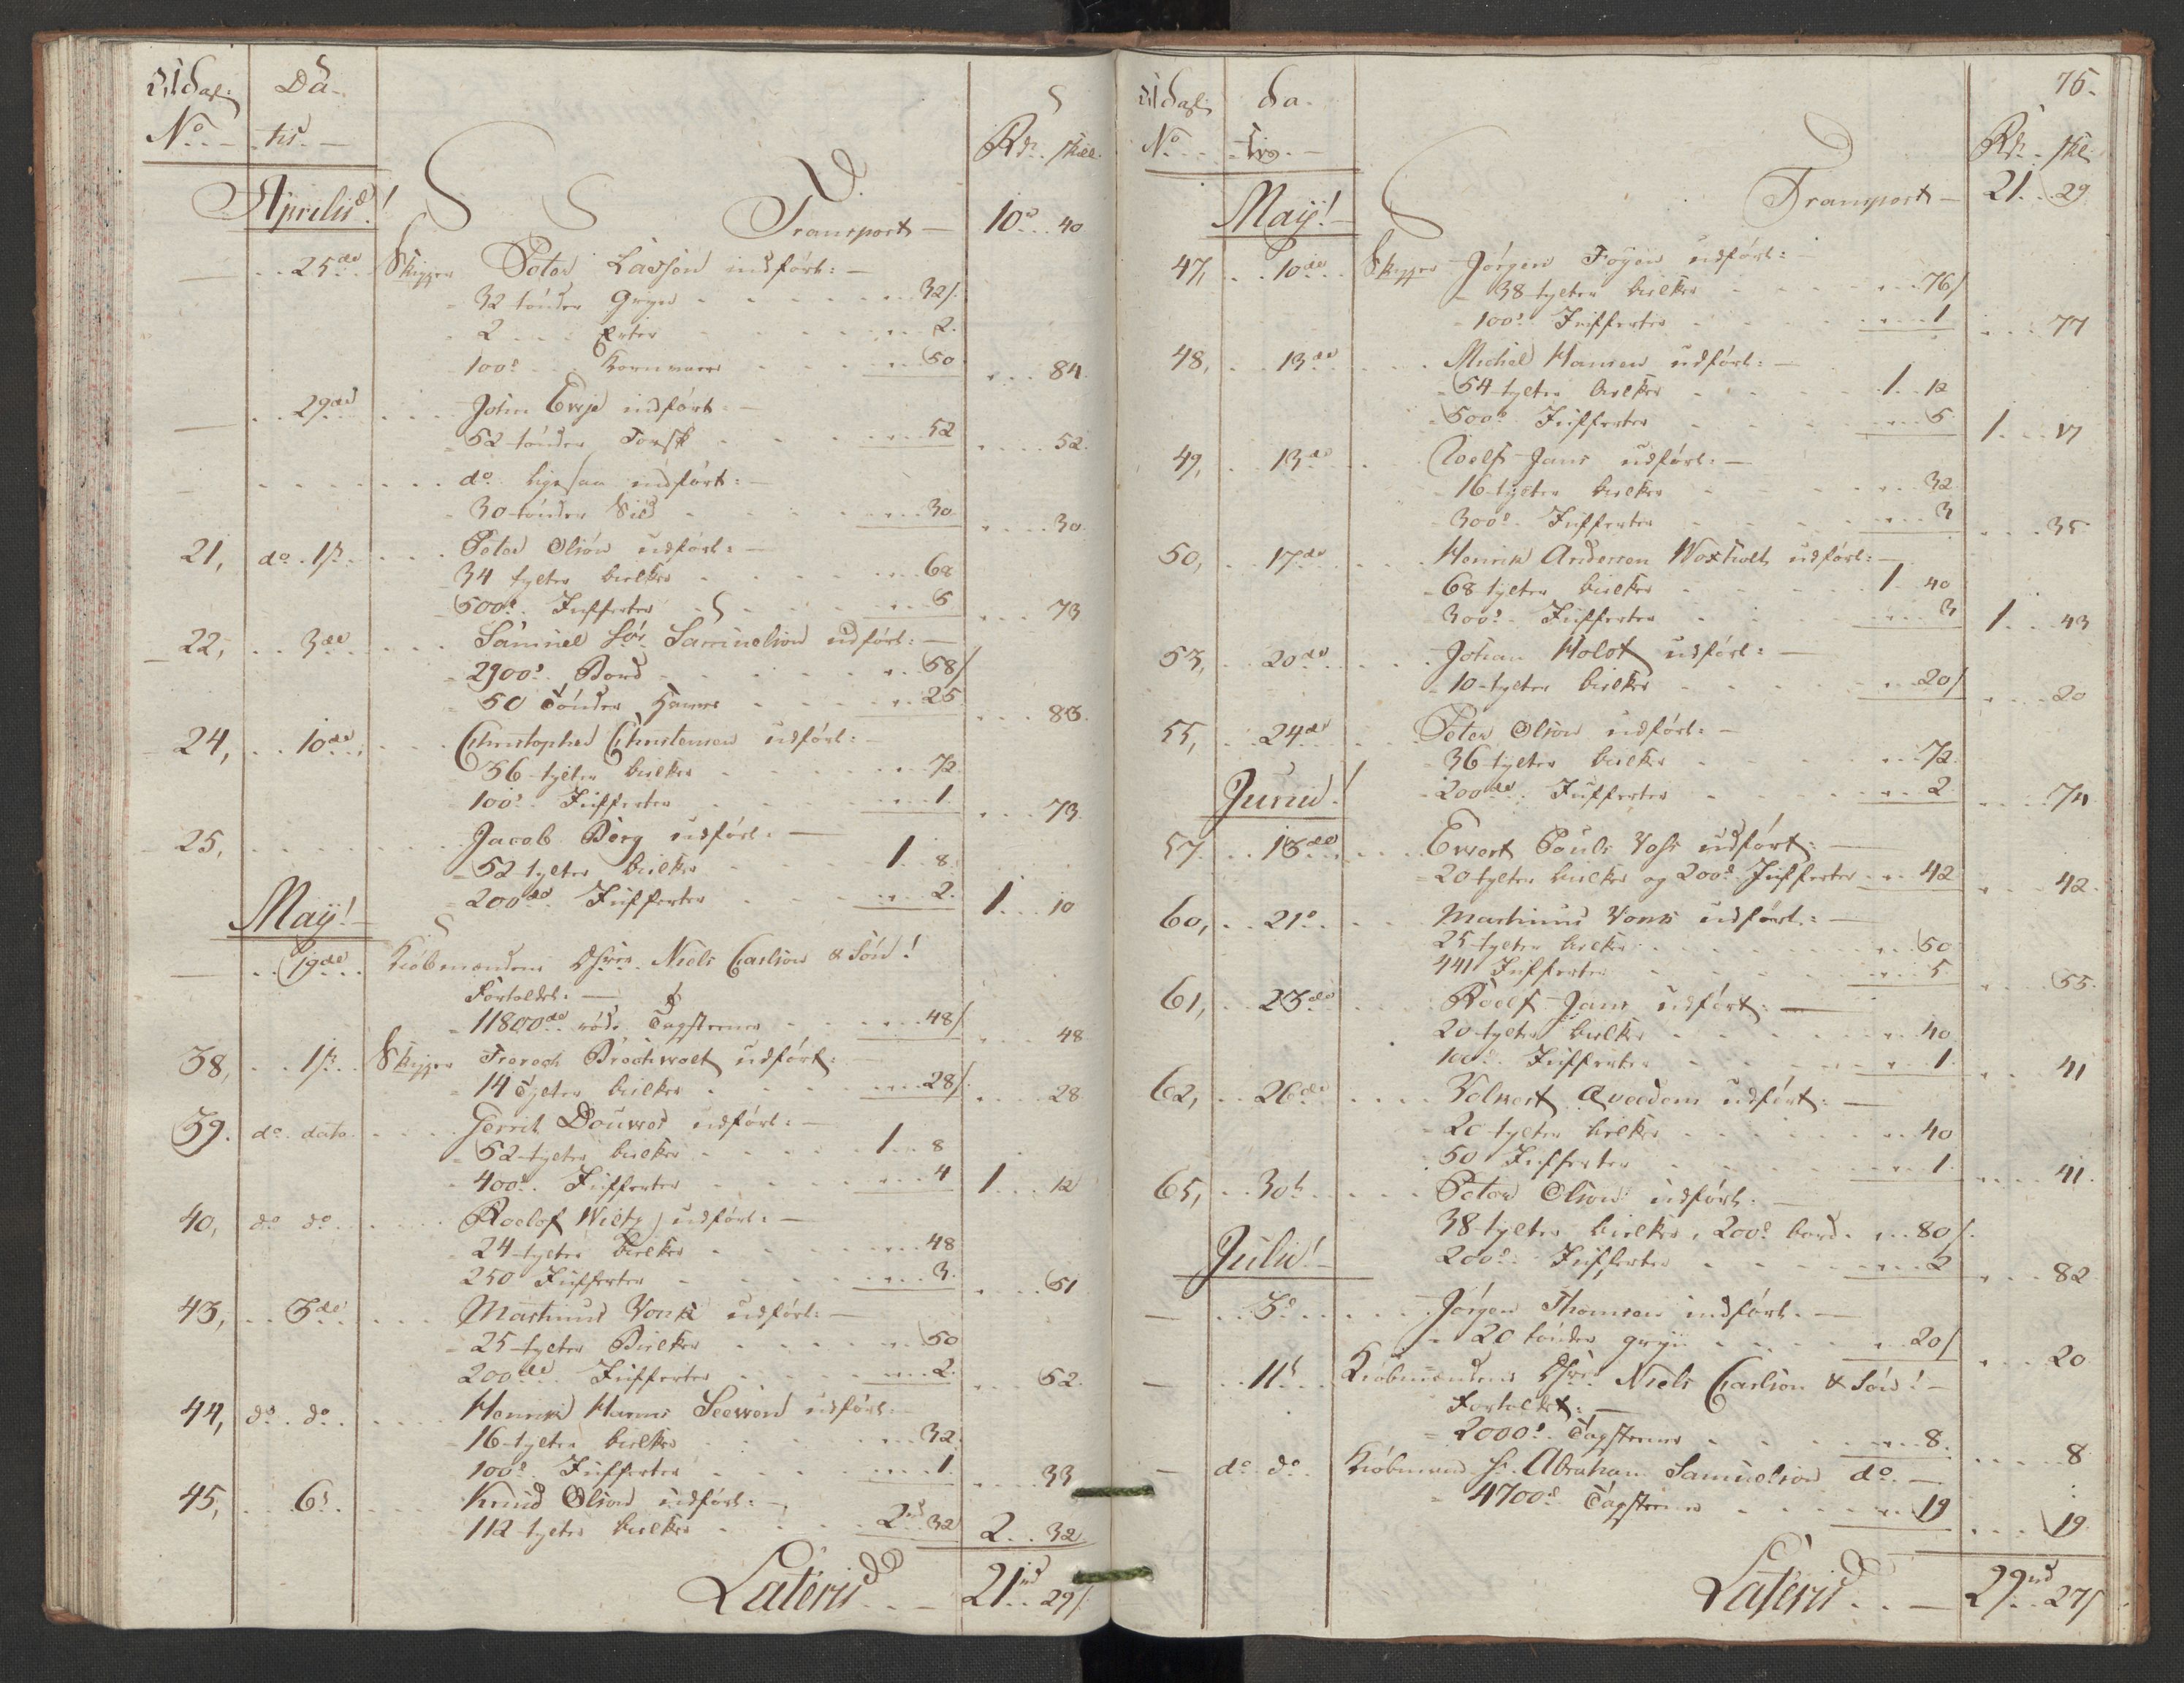 Udg: Da-
No. tis. Rdr. skill.
Aprilis! Transport 10 .. 40
25de Skipper Peter Lassen indført:
32 tönder Gryn .. 32/.
2 .. Erter .. 2.
100d. Kornvarer .. 50 .. 84.
29de John Evye indført:
52 tönder Torsk .. 52 .. 52.
do ligesaa indført:
30 tönder Sild .. 30 .. 30.
21, do. 1st. Peter Olsön udført:
34 tylter bielker .. 68
500d. Juffferter .. 5 .. 73
22, 3de Samuel Sör. Samuelson udført:
2900d. Bord .. 58/
50 Tönder .. 25 .. 83.
24, 10de Christopher Christensen udført:
36 tylter bielker .. 72
100d. Juffferter .. 1. .. 73.
25, Jacob Berg udført:
52 tylter bielker .. 1 .. 8.
200de Juffferter .. 2. 1 .. 10
May!
19de Kiöbmændene Niels Carlson & Sön!
Fortoldet:
11800de röde Tagsteene .. 48/ .. 48
38, 1st. Skipper Frerech Brochwolt udført:
14 Tylter bielker .. 28/. .. 28
39. do. dato. Gerrit Douwes udført:
52 tylter bielker .. 1 .. 8
400d. Juffferter .. 4 1 .. 12
40, do do Roelof Wiltz udført:
24 tylter bielker .. 48
250 Juffferter .. 3. .. 51
43, 3de Martinus Vonk udført:
25 tylter Bielker .. 50
200de Juffferter .. 2. .. 52.
44, do. do. Henrik Harms Seeword udført:
16 tylter bielker .. 32.
100d. Juffferter .. 1. .. 33
45, 6d. Knud Olson udført:
112 tylter bielker .. 2 .. 32 2 .. 32.
Lateris 21 .. 29/.
76.
Udg: da-
No. tis. Rdr. skl.
May! Transport 21 .. 29
47, 10de Skipper Jörgen Foyen udført:
38 tylter bielker .. 76/
100d. Juffferter .. 1 .. 77
48, 13de Michel Hansen udført:
54 tylter bielker .. 1 .. 12
500d. Juffferter .. 5 1 .. 17
49, 13de Roelf Jans udført:
16 tylter bielker .. 32
300d. Juffferter .. 3 .. 35
50, 17de Henrik Andersen Woxholt udført:
68 tylter bielker .. 1 .. 40
300d. Juffferter .. 3 1 .. 43
53, 20de Johan Holst udført:
10 tylter bielker .. 20/ .. 20
55, 24de Peter Olson udført:
36 tylter bielker .. 72.
200de Juffferter .. 2 .. 74
Junii!
57. 13de Ewert Pauls Vohs udført:
20 tylter bielker og 200d. Juffferter .. 42 .. 42.
60, 21d. Martinus Vonk udført:
25 tylter bielker .. 50
441 Juffferter .. 5. .. 55.
61, 23de Roelf Jans udført:
20 tylter bielker .. 40
100d. Juffferter .. 1. .. 41
62, 26de Volkert Qvædom udført:
20 tylter bielker .. 40
50 Juffferter .. 1. .. 41.
65, 30t. Peter Olson udført:
38 tylter bielker, 200d. bord .. 80/.
200d. Juffferter .. 2 .. 82
Julii!
3d. Jörgen Thomsen indført:
20 tönder gryn .. 20/ .. 20
11t. Kiöbmændene Niels Carlson & Sön!
Fortoldet:
2000d. Tagsteene .. 8. .. 8
do do. Kiöbmand Hr. Abraham Samuelson do.
4700d. Tagsteene .. 19 .. 19.
Lateris 29 .. 27/